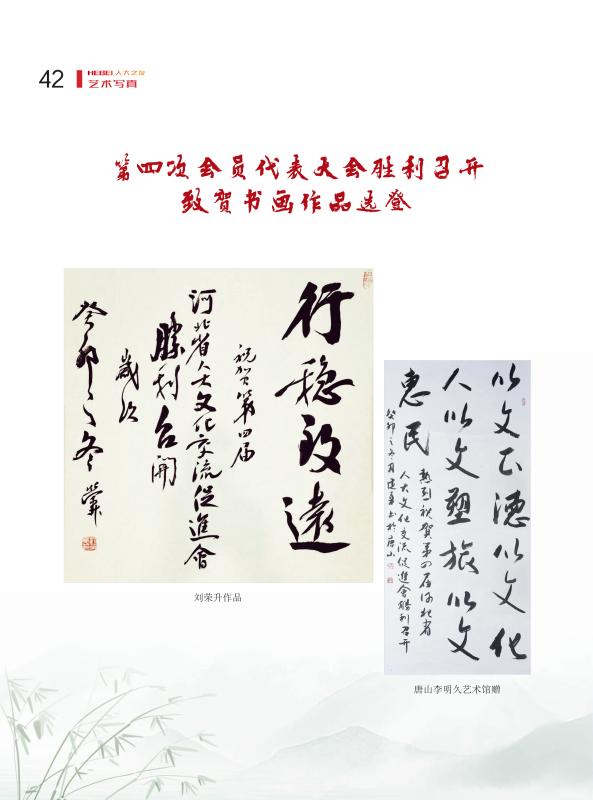 42
HEBEI人大之友
艺术写真
第四次会员代表大会胜利召开
致贺书画作品选登
行穩致遠
祝贺第四届
河北省人大文化交流促進會
勝利召開
歲次
癸卯之冬 榮
刘荣升作品
以文正德以文化
人以文塑旅以文
惠民
熱烈祝贺第四届河北省
人大文化交流促進會勝利召开
癸卯之冬月建章书於唐山
唐山李明久艺术馆赠